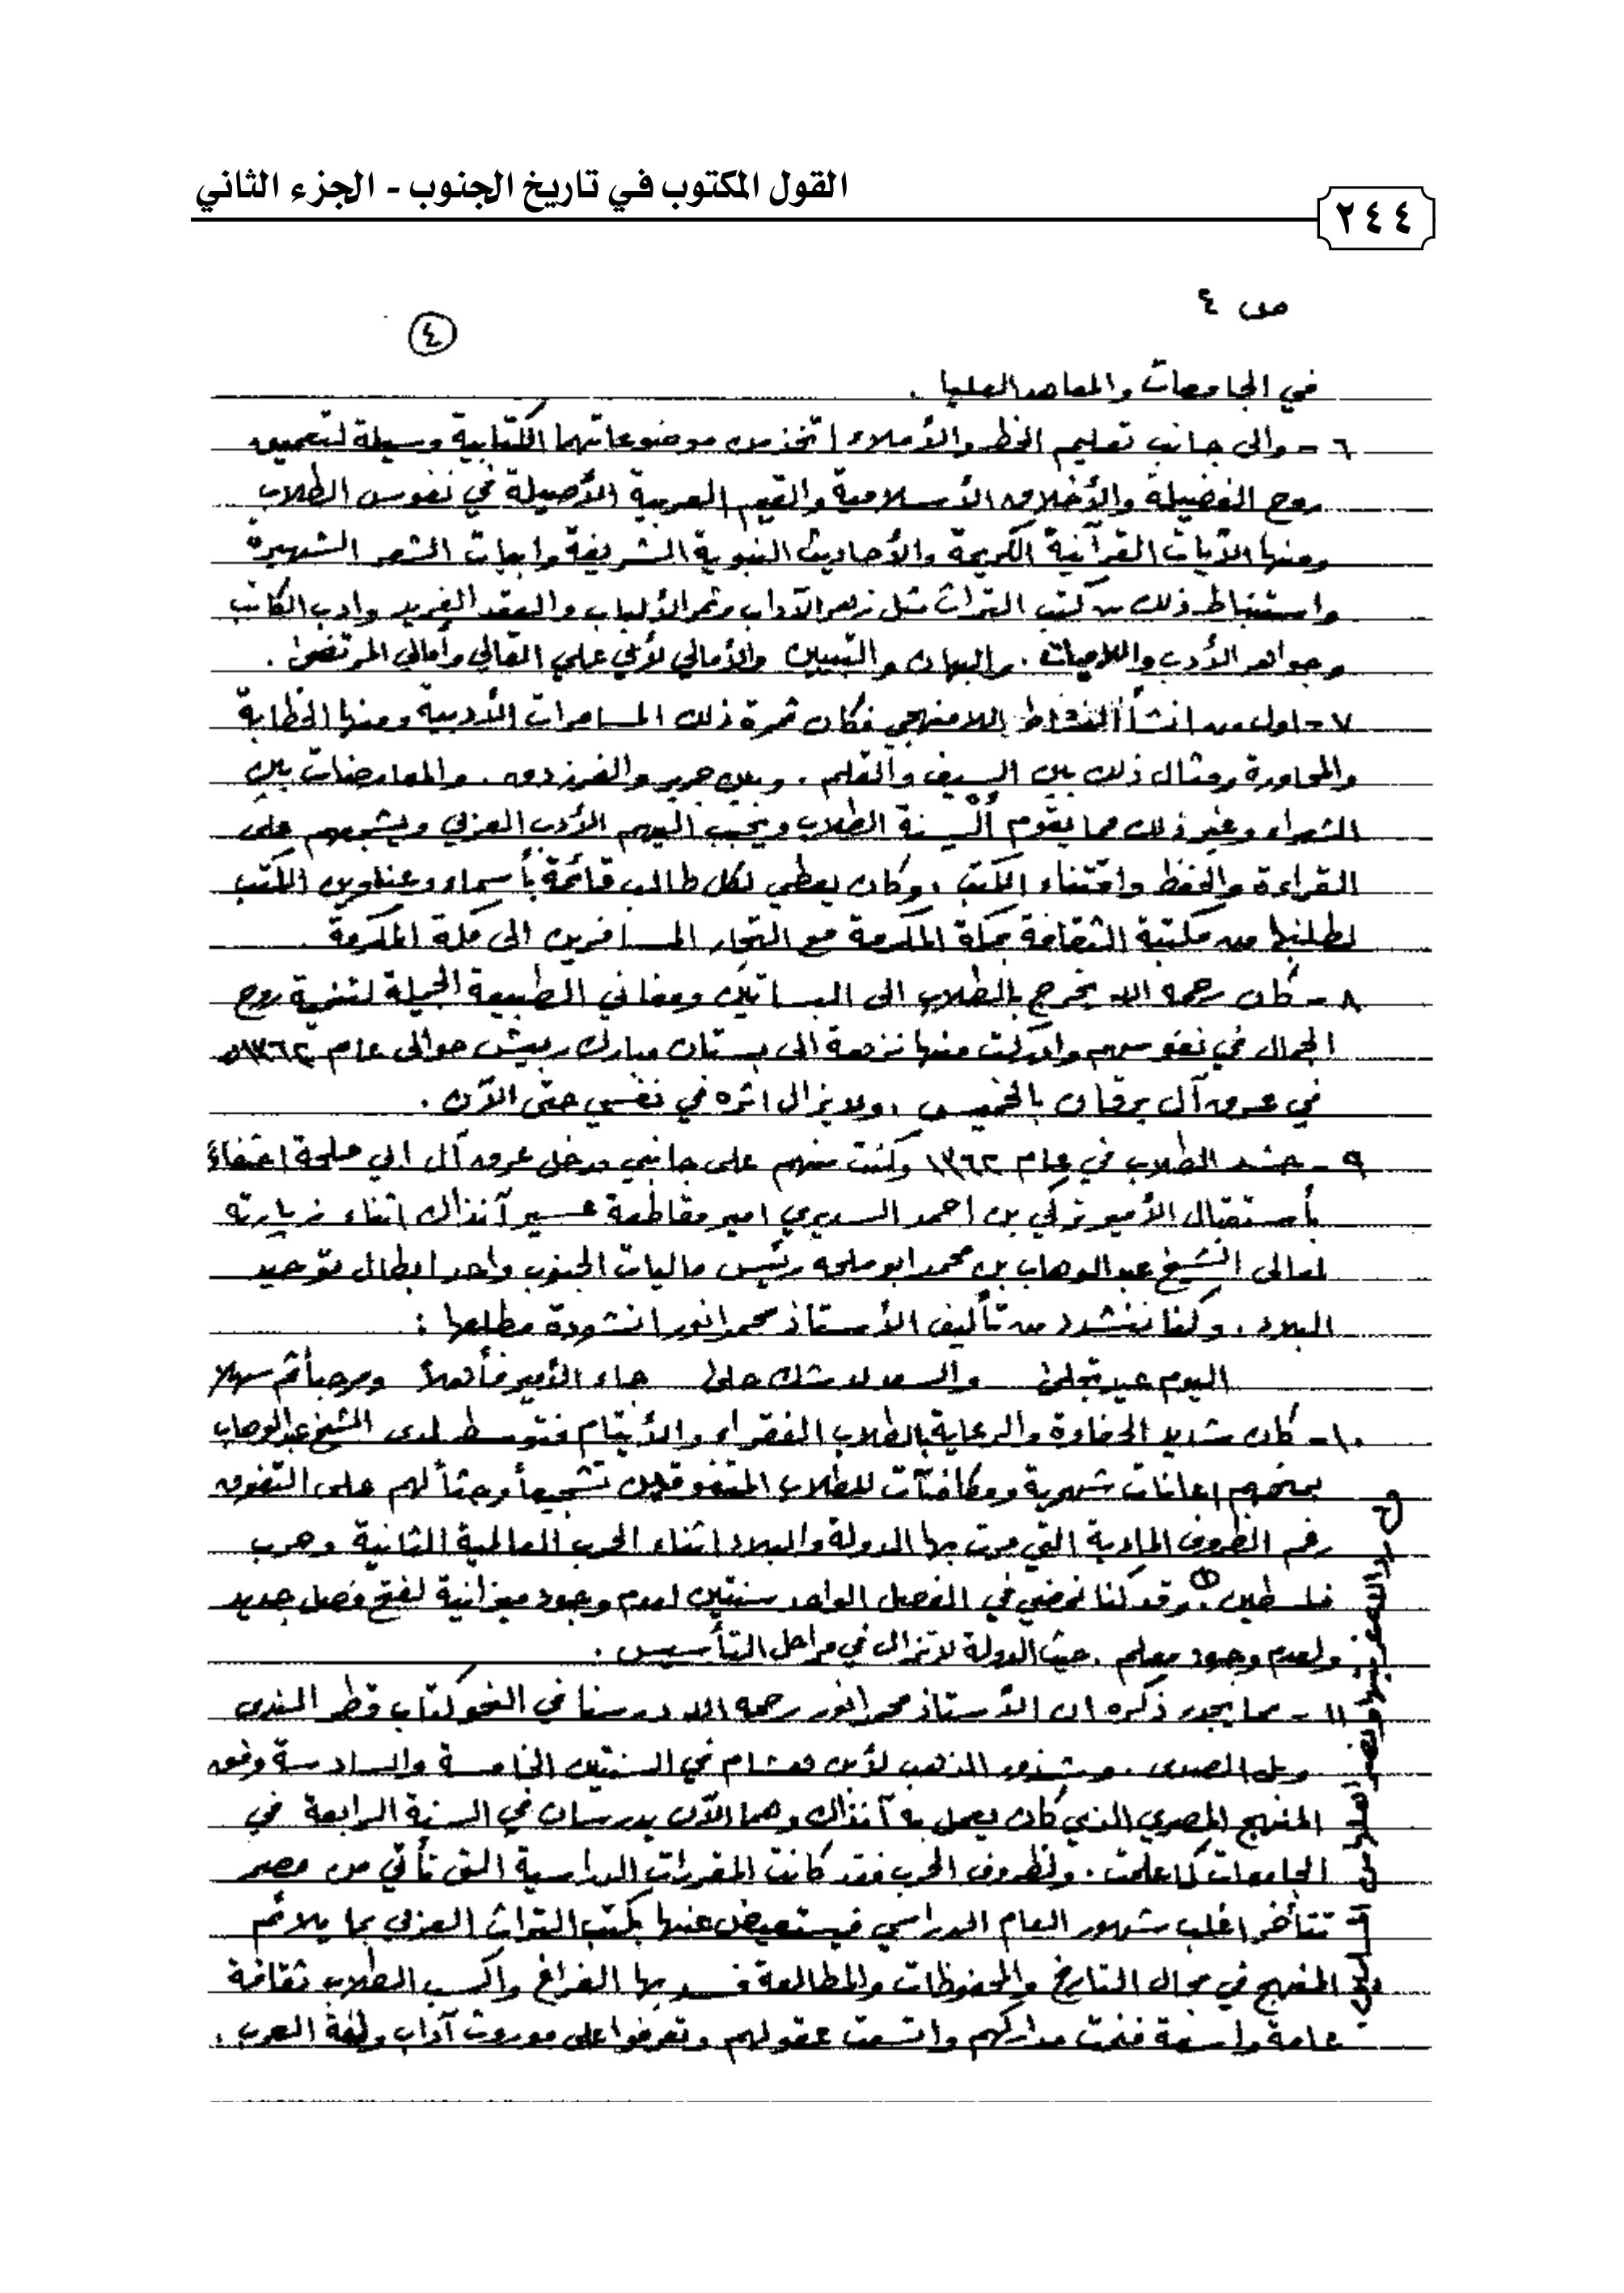 القول المكتوب في تاريخ الجنوب - الجزء الثاني
٢٤٤
ص ٤
٤
في الجامعات والمعاهد العليا .
٦ - والى جانب تعليم الخط والأملاء اتخذ من موضوعاتهما الكتابية وسيلة لتعميق
روح الفضيلة والأخلاق الأسلامية والقيم العربية الأصيلة في نفوس الطلاب
ومنها الآيات القرآنية الكريمة والأحاديث النبوية الشريفة وابيات الشعر الشهيرة
واستنباط ذلك من كتب التراث مثل زهر الآداب وثمر الألباب والعقد الفريد وادب الكاتب
وجواهر الأدب واللاميات . والبيان والتبيين والأمالي لأبي علي القالي وأمالي المرتضى .
٧ - اول من انشأ النشاط اللامنهجي فكان ثمرة ذلك المسامرات الأدبية ومنها الخطابة
والمحاورة ومثال ذلك بين السيف والقلم . وبين جرير والفرزدق . والمعارضات بين
الشعراء وغير ذلك مما يقوم ألسنة الطلاب ويحبب اليهم الأدب العربي ويشجعهم على
القراءة والحفظ واقتناء الكتب . وكان يعطي لكل طالب قائمة بأسماء وعناوين الكتب
لطلبها من مكتبة الثقافة بمكة المكرمة مع التجار المسافرين الى مكة المكرمة .
٨ - كان رحمه الله يخرج بالطلاب الى البساتين ومغاني الطبيعة الجميلة لتنمية روح
الجمال في نفوسهم وادركت منها نزهة الى بستان مبارك ربيش حوالى عام ١٣٦٢هـ
في عرق آل يرقان بالخميس ، ولا يزال اثره في نفسي حتى الآن .
٩ - حشد الطلاب في عام ١٣٦٢ وكنت منهم على جانبي مدخل عرق آل ابي ملحة احتفاءً
بأستقبال الأمير تركي بن احمد السديري امير مقاطعة عسير آنذاك اثناء زيارته
لمعالى الشيخ عبد الوهاب بن محمد ابو ملحه رئيس ماليات الجنوب واحد ابطال توحيد
البلاد . وكنا ننشد من تأليف الأستاذ محمد انور انشودة مطلعها :
اليوم عيد تجلى والسعد لا شك حلى جاء الأمير فأهلاً ومرحباً ثم سهلا
١٠ - كان شديد الحفاوة والرعاية بالطلاب الفقراء والأيتام فتوسط لدى الشيخ عبدالوهاب
بمنحهم اعانات شهرية ومكافئآت للطلاب المتفوقين تشجيعاً وحثاً لهم على التفوق
رغم الظروف المادية التي مرت بها الدولة والبلاد اثناء الحرب العالمية الثانية وحرب
فلسطين (١) . وقد كنا نمضي في الفصل الواحد سنتين لعدم وجود ميزانية لفتح فصل جديد
ولعدم وجود معلم . حيث الدولة لا تزال في مراحل التأسيس .
١١ - مما يجدر ذكره ان الأستاذ محمد انور رحمه الله درسنا في النحو كتاب قطر الندى
وبل الصدى . وشذور الذهب لأبن هشام في السنتين الخامسة والسادسة وفق
المنهج المصري الذي كان يعمل به آنذاك وهما الآن يدرسان في السنة الرابعة في
الجامعات كما علمت . ولظروف الحرب فقد كانت المقررات الدراسية التي تأتي من مصر
تتأخر اغلب شهور العام الدراسي فيستعيض عنها بكتب التراث العربي بما يلائم
المنهج في مجال التاريخ والمحفوظات والمطالعة فسد بها الفراغ واكسب الطلاب ثقافة
عامة واسعة فنمت مداركهم واتسعت عقولهم وتعرفوا على موروث آداب ولغة العرب .